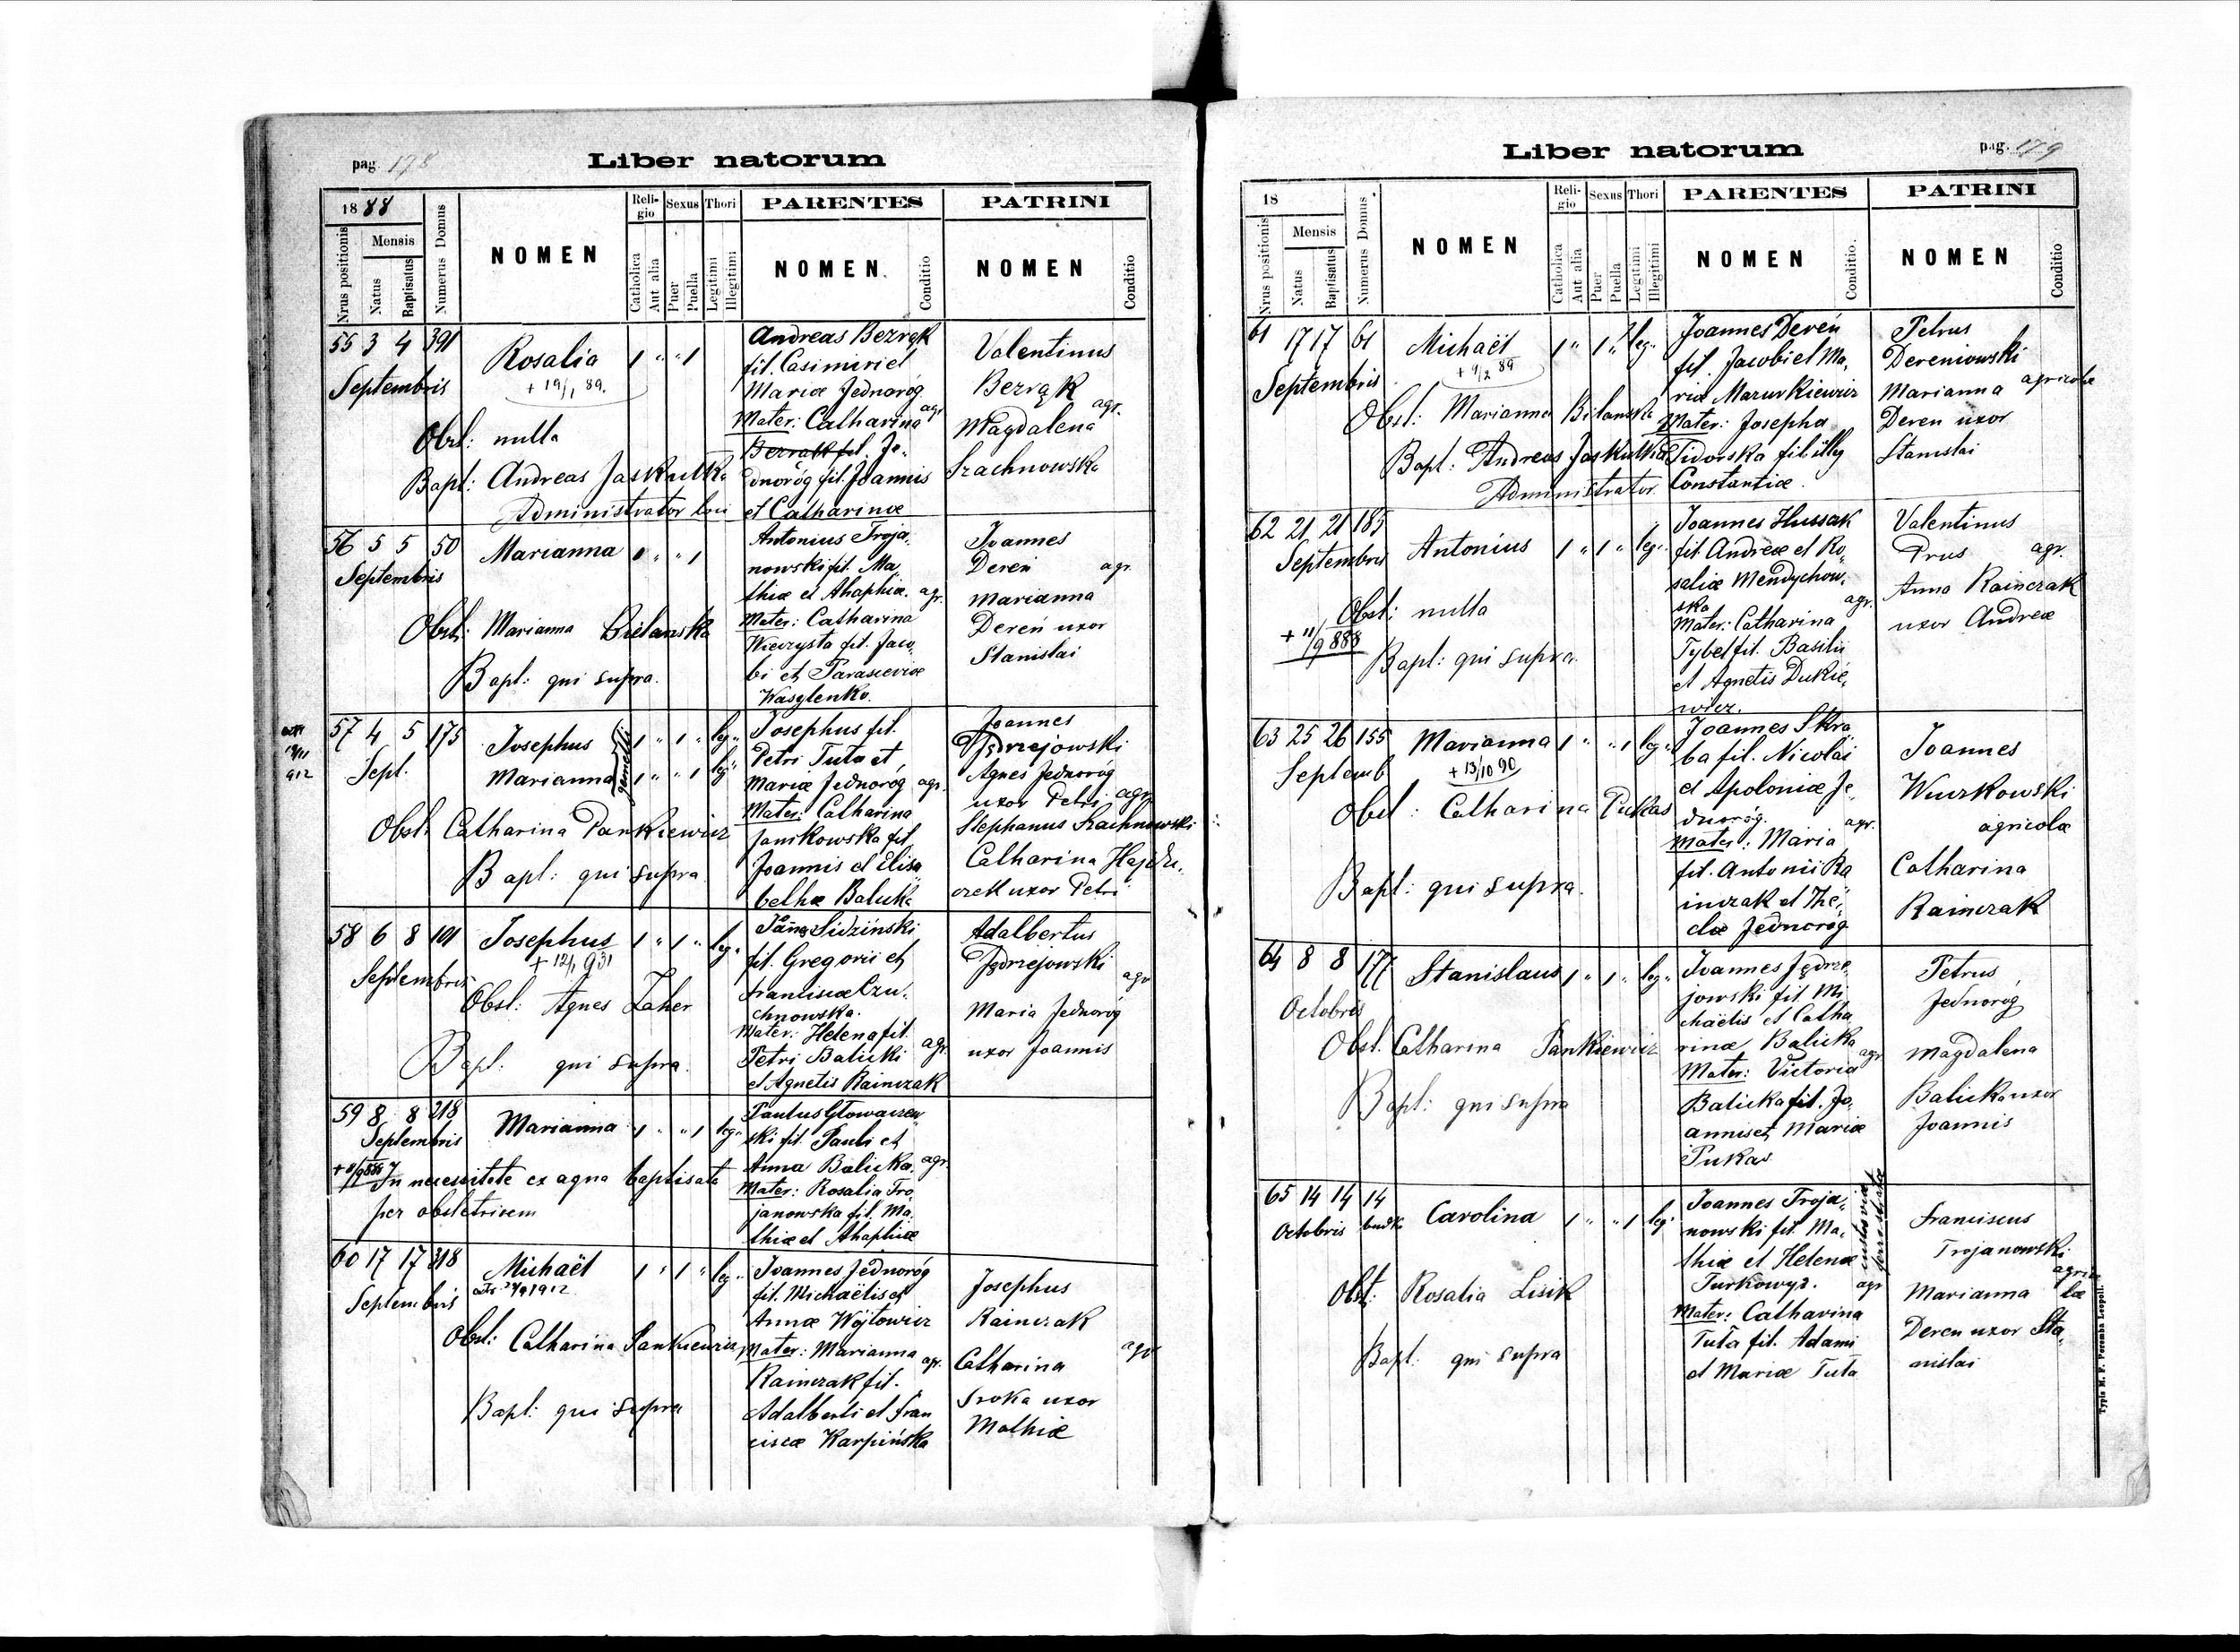 pag. 178
Liber natorum
1888
Nrus positionis
Mensis
Natus
Baptisatus
Numerus Domus
NOMEN
Reli-
gio
Catholica
Aut alia
Sexus
Puer
Puella
Thori
Legitimi
Illegitimi
PARENTES
NOMEN
Conditio
PATRINI
NOMEN
Conditio
55 3 4 391
Septembris
Rosalia
+ 19/1 89.
1 " " 1
Obst: nulla
Bapt: Andreas Jaskulka
Administrator loci
Andreas Bezrąk
fil. Casimiri et
Mariæ Jednoróg
agr
Mater: Catharina
Bezrąk fil. Je-
dnoróg fil. Joannis
et Catharinæ
Valentinus
Bezrąk
agr.
Magdalena
Szachnowska
56 5 5 50
Septembris
Marianna
" " 1
Obst: Marianna Bielanska
Bapt: qui supra.
Antonius Troja-
nowski fil. Ma
thiæ et Ahaphiæ. agr.
Mater: Catharina
fil. Jaco-
bi et Parasceviæ
Wasylenko.
Joannes
Dereń agr.
Marianna
Dereń uxor
Stanislai
57 4 5 175
Sept.
Josephus
Marianna
gemelli
1 " 1 " leg "
1 " " 1 leg "
Obst: Catharina Pankiewicz
Bapt: qui supra
Josephus fil.
Petri Tuta et
Mariæ Jednoróg agr.
Mater: Catharina
Janikowska fil
Joannis et Elisa
bethæ Balicka
Joannes
Jędrzejowski
Agnes Jednoróg
uxor Petri agr
Stephanus Szachnowski
Catharina Hajdu-
czek uxor Petri
58 6 8 101
Septembris
Josephus
+ 12/1 931
1 " 1 " leg "
Obst: Agnes Zaher
Bapt: qui supra.
Sidziński
fil. Gregorii et
Franciscæ Czu-
chnowska.
Mater: Helena fil.
agr
Petri Balicki
et Agnetis Rainczak
Adalbertus
Jędrzejowski
agr
Maria Jednoróg
uxor Joannis
59 8 8 218
Septembris
Marianna
1 " " 1 leg "
In necessitate ex aqua baptisata
per obstetricem
Paulus Głowaczew
ski fil. Pauli et
Anna Balicka. agr.
Mater: Rosalia Tro
janowska fil. Ma
thiæ et Ahaphiæ
60 17 17 318
Septembris
Michaël
1 " 1 " leg "
Obst: Catharina Pankiewicz
Bapt: qui supra
Joannes Jednoróg
fil. Michaëlis et
Annæ Wójtowicz
Mater: Marianna
agr.
Rainczak fil.
Adalberti et Fran
ciscæ Karpińska
Josephus
Rainczak
agr
Catharina
Sroka uxor
Mathiæ
Liber natorum
pag. 179
18
Nrus positionis
Mensis
Natus
Baptisatus
Numerus Domus
NOMEN
Reli-
gio
Catholica
Aut alia
Sexus
Puer
Puella
Thori
Legitimi
Illegitimi
PARENTES
NOMEN
Conditio.
PATRINI
NOMEN
Conditio
61 17 17 61
Septembris
Michaël
1 " 1 " leg "
Obst: Marianna Bilanska
Bapt: Andreas Jaskulka
Administrator
Joannes Dereń
fil. Jacobi et Ma-
riæ Mazurkiewicz
Mater: Josepha
Sidorska fil illeg
Constantiæ.
Petrus
Dereniowski
Marianna agricolæ
Deren uxor
Stanislai
62 21 21 185
Septembris
Antonius
1 " 1 " leg "
Obst: nulla
+ 11/9 888
Bapt: qui supra.
Joannes Hussak
fil. Andreæ et Ro-
saliæ Mendychow-
ska agr.
Mater: Catharina
Tybel fil. Basilii
et Agnetis Dukie-
wicz.
Valentinus
Prus agr.
Anna Rainczak
uxor Andreæ
63 25 26 155
Septemb
Marianna
+ 13/10 90
1 " " 1 leg "
Obst: Catharina Pukas
Bapt: qui supra.
Joannes Skra
ba fil. Nicolai
et Apoloniæ Je-
dnoróg. agr.
Mater: Maria
fil. Antonii Ra
inczak et The-
clæ Jednoróg
Joannes
Wuzkowski
agricolæ
Catharina
Rainczak
64 8 8 177
Octobris
Stanislaus
1 " 1 " leg "
Obst. Catharina Pankiewicz
Bapt: qui supra
Joannes Jędrze
jowski fil. Mi
chaëlis et Catha
rinæ Balicka
agr
Mater: Victoria
Balicka fil. Jo-
annis et Mariæ
Pukas
Petrus
Jednoróg
Magdalena
Balicka uxor
Joannis
65 14 14 14
Octobris budk
Carolina
1 " " 1 leg "
Obst: Rosalia Lisik
Bapt: qui supra
Joannes Troja-
nowski fil. Ma-
thiæ et Helenæ
Turkowyz. agr
custos viæ
ferro stratæ
Mater: Catharina
Tuta fil. Adami
et Mariæ Tuta
Franciscus
Trojanowski
agrico
læ
Marianna
Deren uxor Sta-
nislai
Typis M. F. Poremba Leopoli.